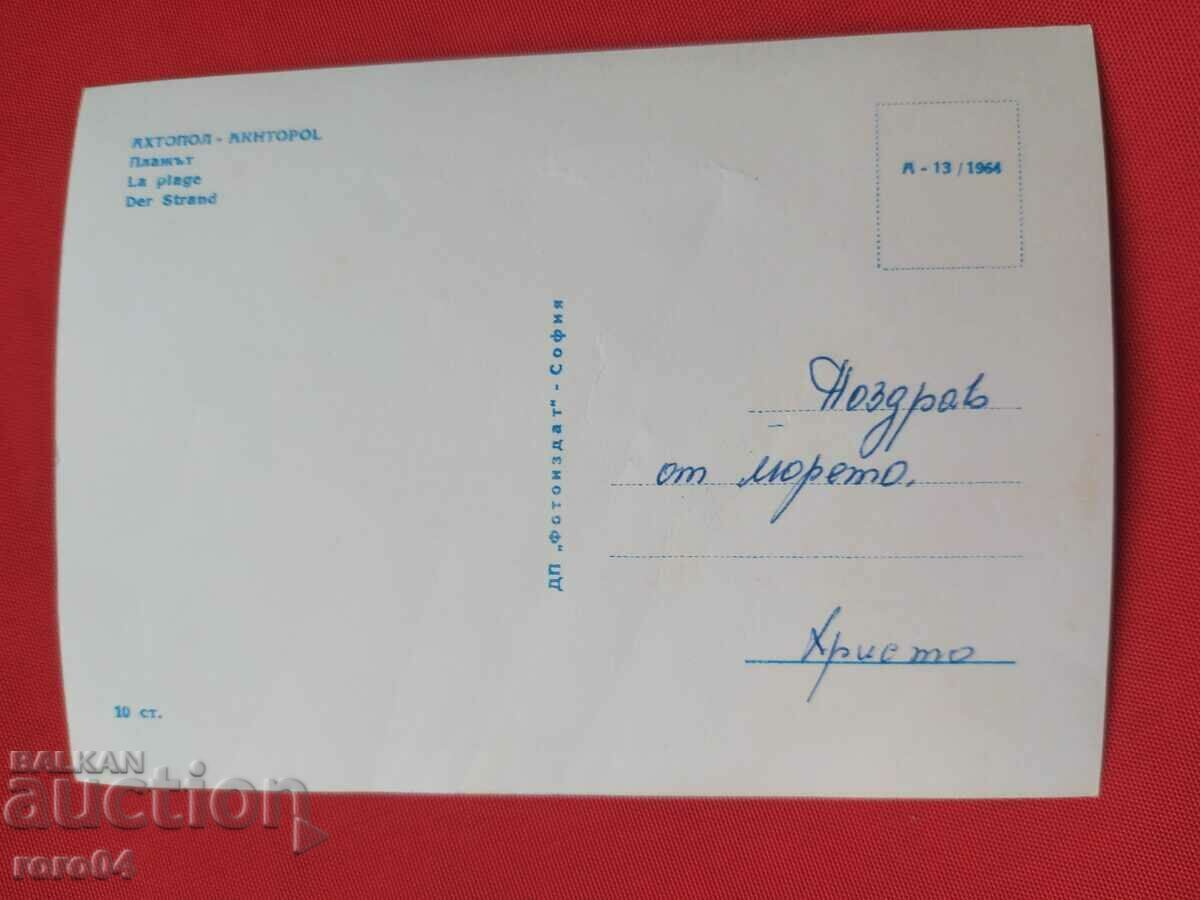 АХТОПОЛ - AKHTOPOL
Плажът
La plage
Der Strand
А - 13 / 1964
ДП „Фотоиздат“ - София
Поздрав
от морето.
Христо
10 ст.
BALKAN
auction
roro04